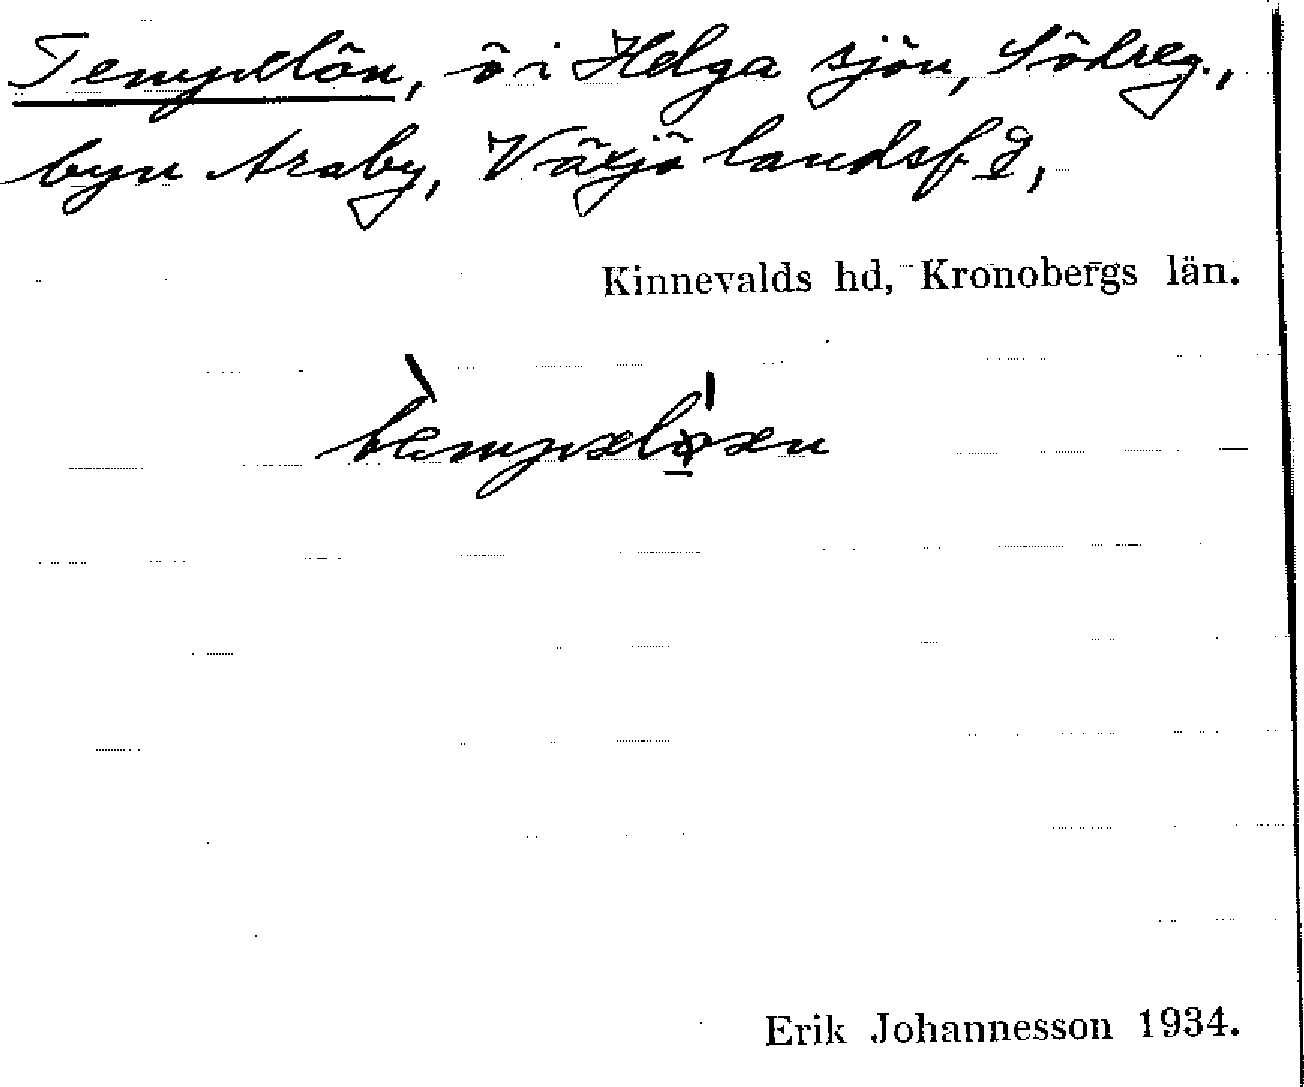 Tempelön, ö i Helga sjön, Södreg.,
byn Araby, Växjö landsf d,
Kinnevalds hd, Kronobergs län.
Erik Johannesson 1934.